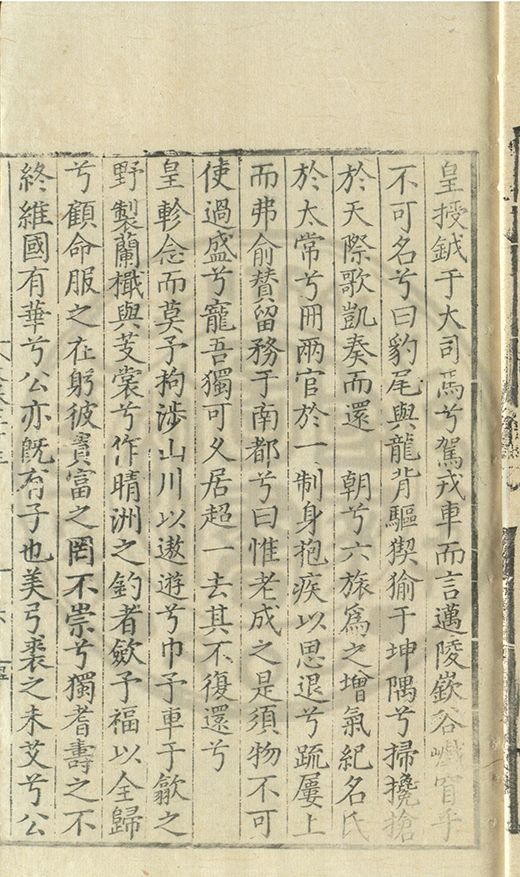 皇授鉞于大司馬兮駕戎車而言邁陵嶔谷窅乎
不可名兮曰豹尾與龍背驅猰㺄于坤隅兮掃攙搶
於天際歌凱奏而還　朝兮六旅爲之增氣紀名氏
於太常兮冊兩官於一制身抱疾以思退兮疏屢上
而弗俞贊留務于南都兮曰惟老成之是須物不可
使過盛兮寵吾獨可久居超一去其不復還兮
皇軫念而莫予拘涉山川以遨遊兮巾予車于歙之
野製蘭檥與芰裳兮作晴洲之釣者斂予福以全歸
兮顧命服之在躬彼貴富之罔不崇兮獨耆壽之不
終維國有華兮公亦旣有子也美弓裘之未艾兮公